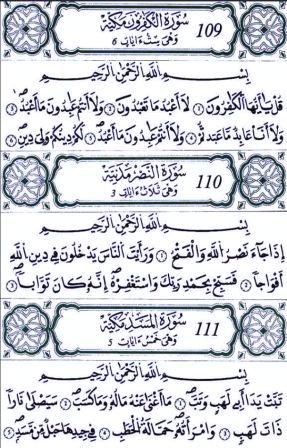 109
سُورَةُ الْكٰفِرُونَ مَكِّيَّةٌ
وَهِيَ سِتُّ ءَايَاتٍ ٦
بِسْمِ اللَّهِ الرَّحْمٰنِ الرَّحِيمِ
قُلْ يٰأَيُّهَا الْكٰفِرُونَ ١ لَا أَعْبُدُ مَا تَعْبُدُونَ ٢ وَلَا أَنْتُمْ عٰبِدُونَ مَا أَعْبُدُ ٣
وَلَا أَنَا عَابِدٌ مَّا عَبَدتُّمْ ٤ وَلَا أَنْتُمْ عٰبِدُونَ مَا أَعْبُدُ ٥ لَكُمْ دِينُكُمْ وَلِيَ دِينِ ٦
110
سُورَةُ النَّصْرِ مَدَنِيَّةٌ
وَهِيَ ثَلَاثُ ءَايَاتٍ ٣
بِسْمِ اللَّهِ الرَّحْمٰنِ الرَّحِيمِ
إِذَا جَاءَ نَصْرُ اللَّهِ وَالْفَتْحُ ١ وَرَأَيْتَ النَّاسَ يَدْخُلُونَ فِي دِينِ اللَّهِ
أَفْوَاجًا ٢ فَسَبِّحْ بِحَمْدِ رَبِّكَ وَاسْتَغْفِرْهُ إِنَّهُ كَانَ تَوَّابًا ٣
111
سُورَةُ الْمَسَدِ مَكِّيَّةٌ
وَهِيَ خَمْسُ ءَايَاتٍ ٥
بِسْمِ اللَّهِ الرَّحْمٰنِ الرَّحِيمِ
تَبَّتْ يَدَا أَبِي لَهَبٍ وَتَبَّ ١ مَا أَغْنَىٰ عَنْهُ مَالُهُ وَمَا كَسَبَ ٢ سَيَصْلَىٰ نَارًا
ذَاتَ لَهَبٍ ٣ وَامْرَأَتُهُ حَمَّالَةَ الْحَطَبِ ٤ فِي جِيدِهَا حَبْلٌ مِّن مَّسَدٍ ٥